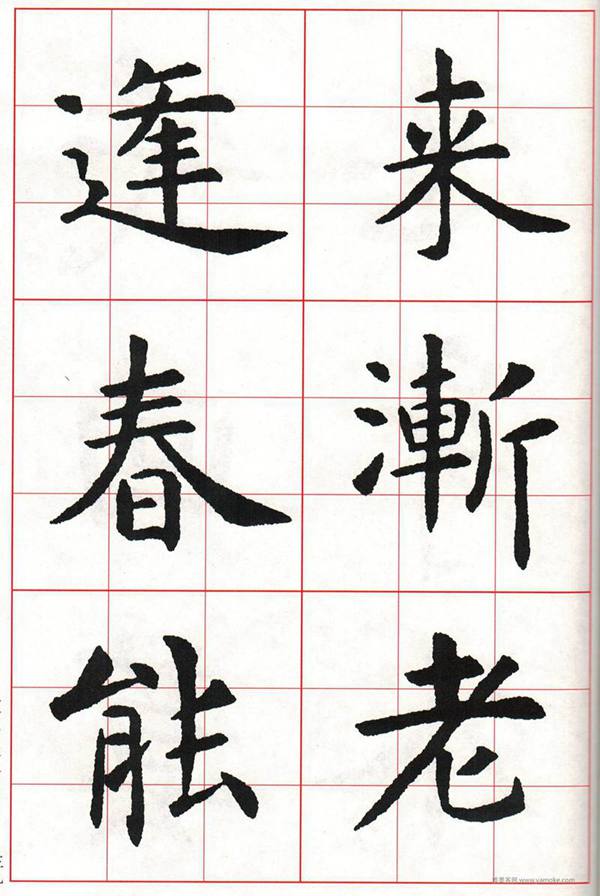 来漸老
逢春能
www.yamoke.com